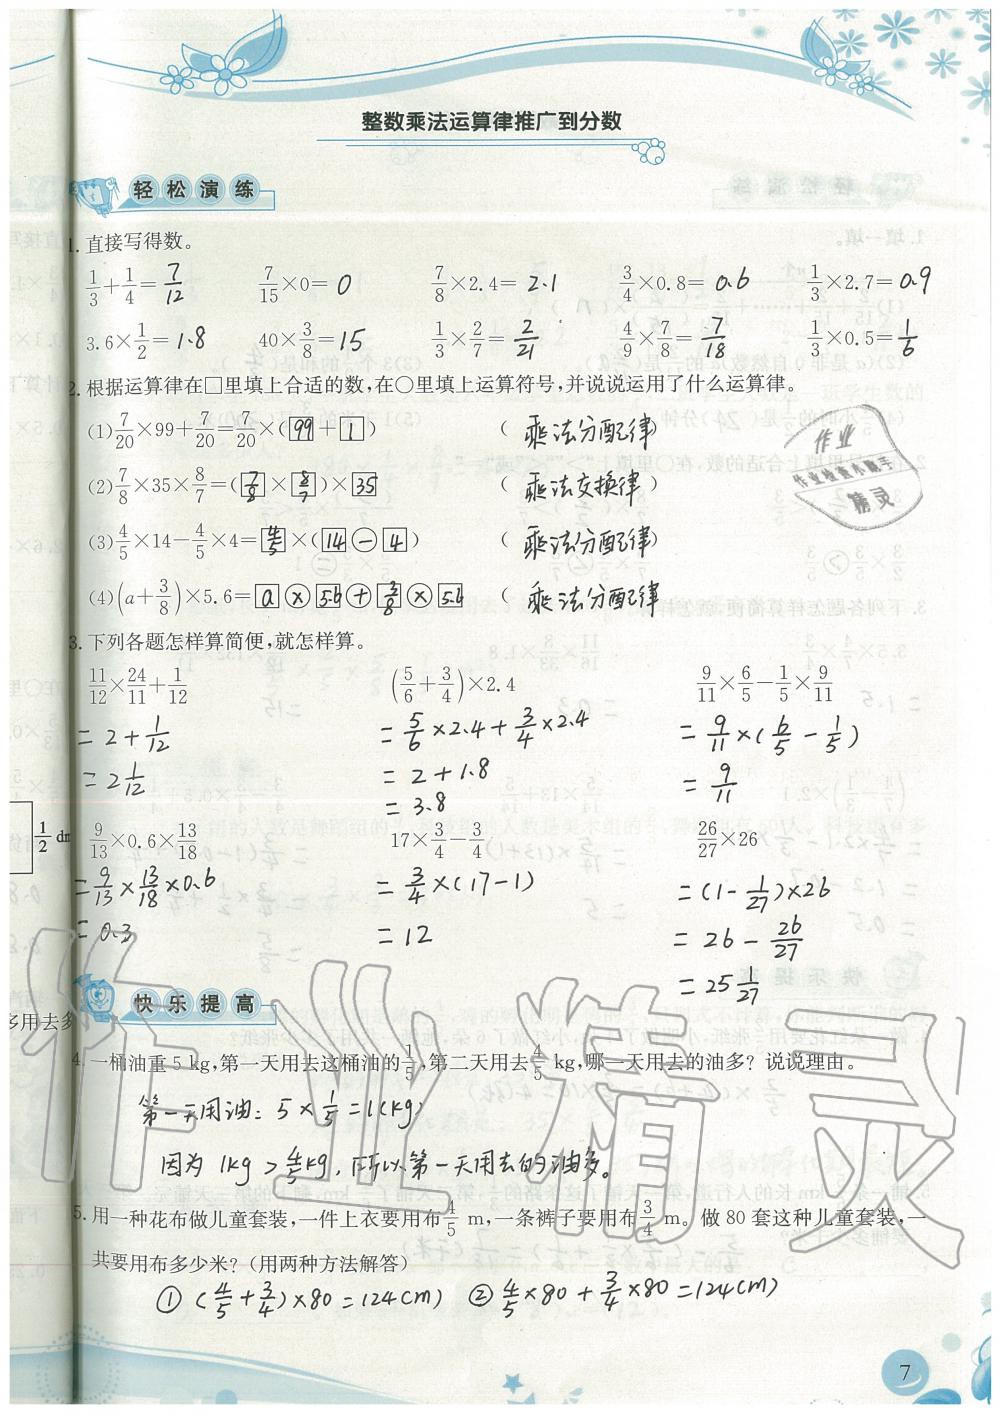 整数乘法运算律推广到分数
轻松演练
1.直接写得数。
1/3+1/4=7/12 7/15×0=0 7/8×2.4=2.1 3/4×0.8=0.6 1/3×2.7=0.9
3.6×1/2=1.8 40×3/8=15 1/3×2/7=2/21 4/9×7/8=7/18 1/3×0.5=1/6
2.根据运算律在□里填上合适的数,在○里填上运算符号,并说说运用了什么运算律。
(1)7/20×99+7/20=7/20×(99+1) (乘法分配律)
(2)7/8×35×8/7=(7/8×8/7)×35 (乘法交换律)
(3)4/5×14-4/5×4=4/5×(14-4) (乘法分配律)
(4)(a+3/8)×5.6=a×5.6+3/8×5.6 (乘法分配律
作业
作业检查小助手
精灵
3.下列各题怎样算简便,就怎样算。
11/12×24/11+1/12 (5/6+3/4)×2.4 9/11×6/5-1/5×9/11
=2+1/12 =5/6×2.4+3/4×2.4 =9/11×(6/5-1/5)
=2 1/12 =2+1.8 =9/11
=3.8
9/13×0.6×13/18 17×3/4-3/4 26/27×26
=9/13×13/18×0.6 =3/4×(17-1) =(1-1/27)×26
=0.3 =12 =26-26/27
=25 1/27
1/2 dm
多用去多
快乐提高
4.一桶油重5 kg,第一天用去这桶油的1/5,第二天用去4/5 kg,哪一天用去的油多?说说理由。
第一天用油:5×1/5=1(kg)
因为1kg>4/5kg,所以第一天用去的油多。
5.用一种花布做儿童套装,一件上衣要用布4/5 m,一条裤子要用布3/4 m。做80套这种儿童套装,一
共要用布多少米?(用两种方法解答)
①(4/5+3/4)×80=124(m) ②4/5×80+3/4×80=124(m)
作业精灵
7